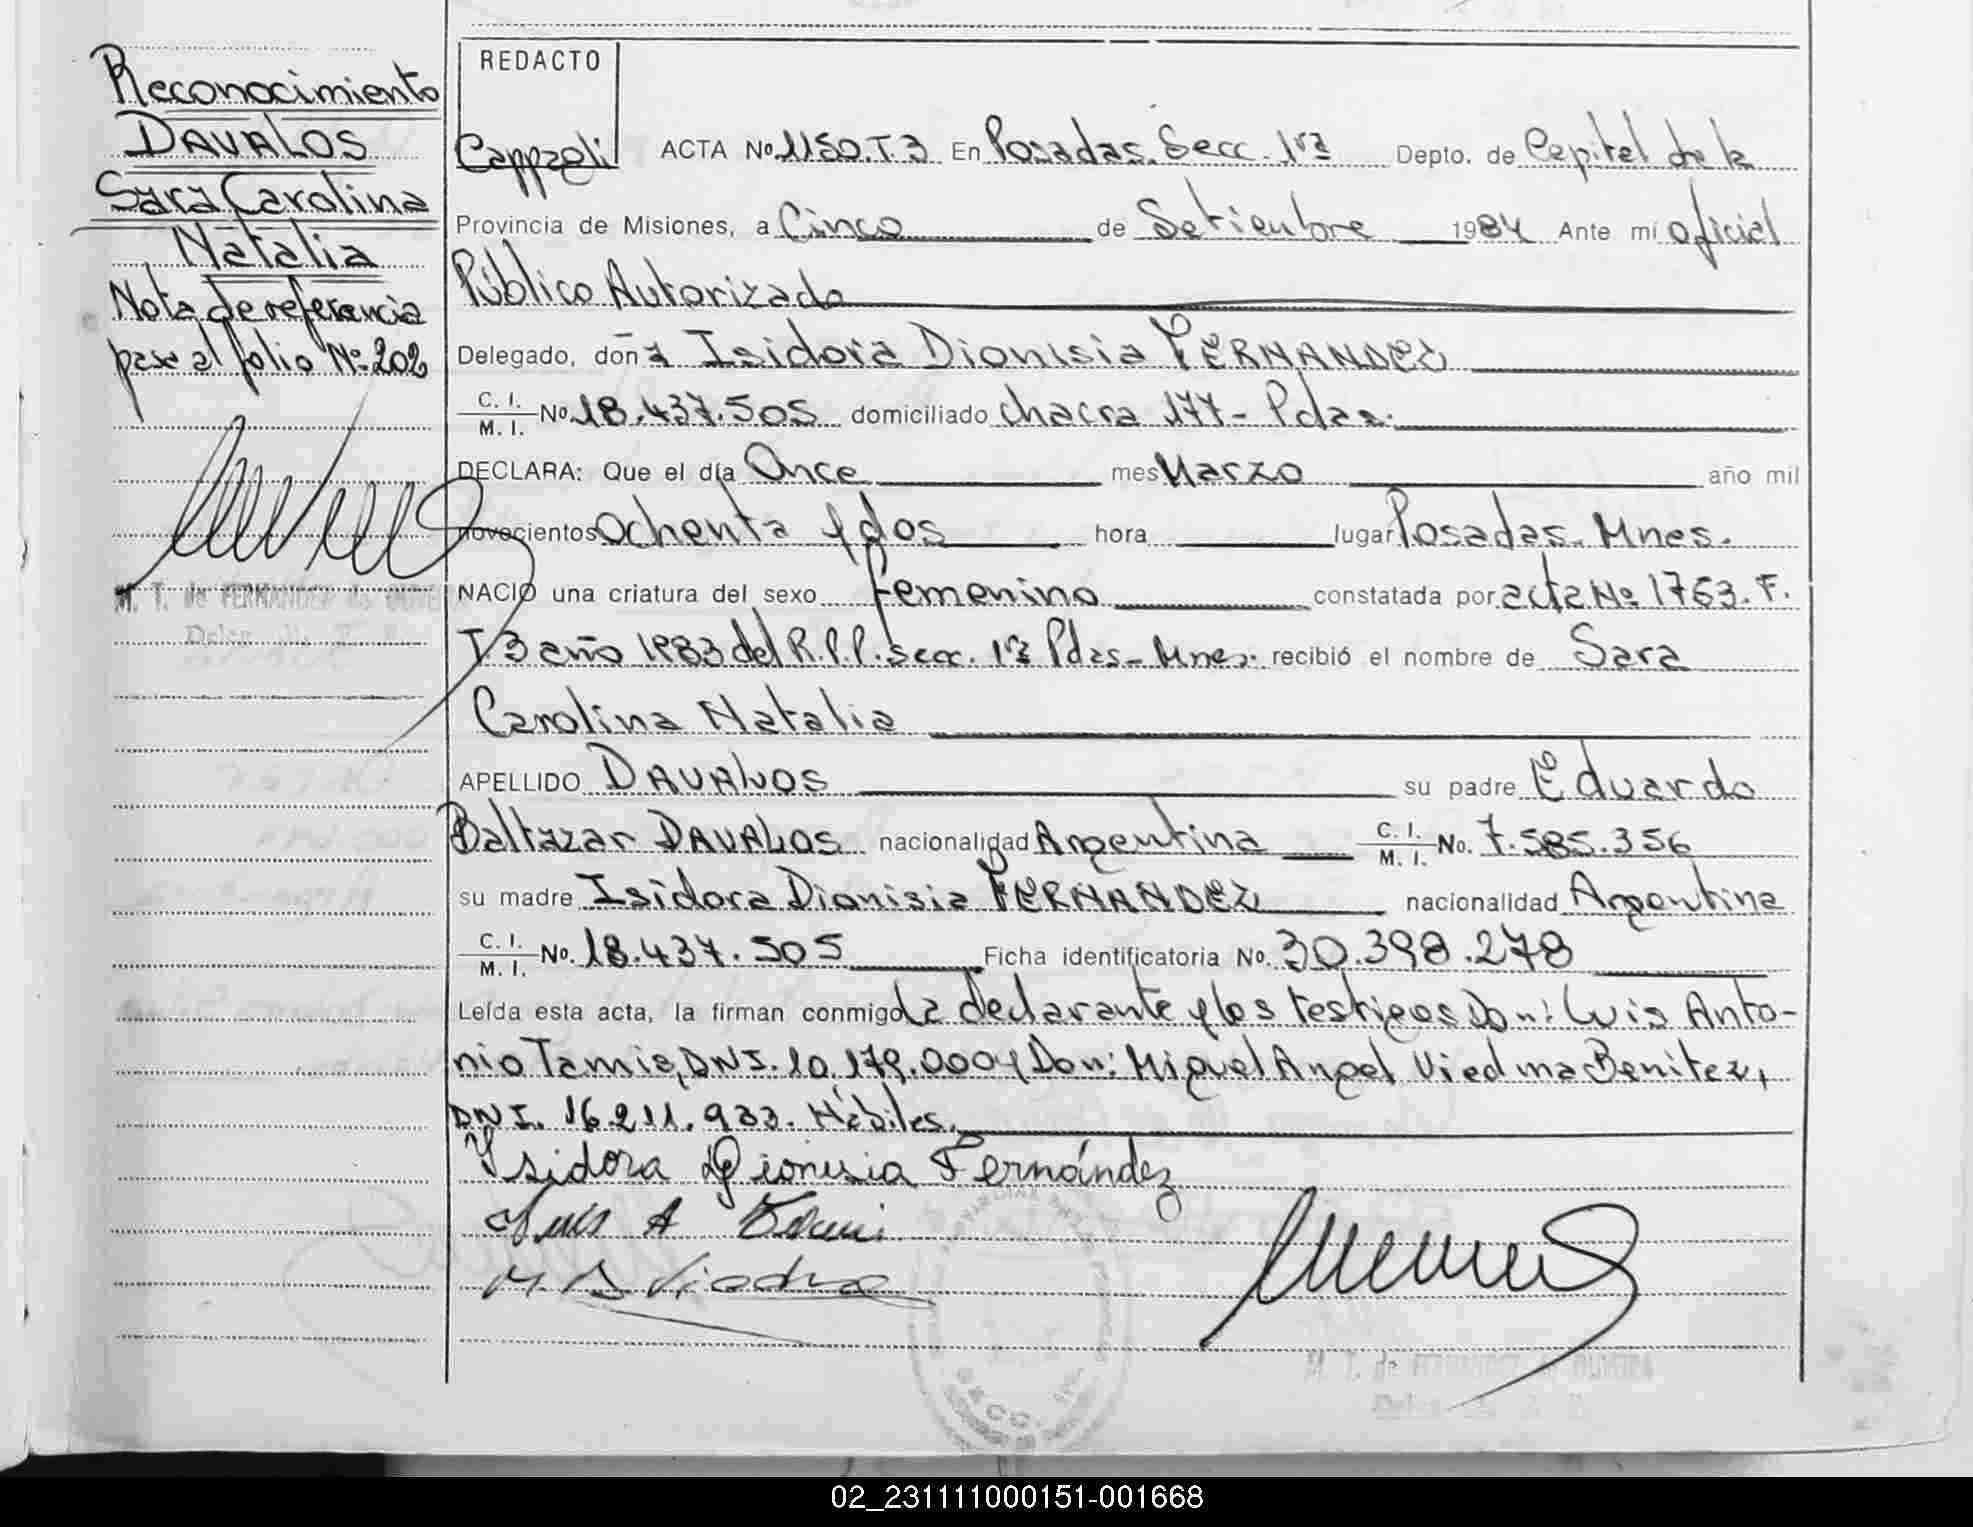 Reconocimiento
DAVALOS
Sara Carolina
Natalia
Nota de referencia
pase al folio Nº 202
M. T. de FERNANDEZ de OLIVERA
REDACTO
Cappagli
ACTA Nº 1150.T.3 En Posadas. Secc. 1ra Depto. de Capital de la
Provincia de Misiones, a Cinco de Setiembre 1984 Ante mí oficial
Público Autorizado
Delegado, don a Isidora Dionisia FERNANDEZ
C. I. / M. I. Nº 18.437.505 domiciliado chacra 177- Pdas.
DECLARA: Que el día Once mes Marzo año mil
novecientos Ochenta y dos hora lugar Posadas. Mnes.
NACIO una criatura del sexo femenino constatada por acta Nº 1763. F.
T 3 año 1983 del R.P.P. secc. 1ra Pdas- Mnes. recibió el nombre de Sara
Carolina Natalia
APELLIDO DAVALOS su padre Eduardo
Baltazar DAVALOS nacionalidad Argentina C. I. / M. I. No. 7.585.356
su madre Isidora Dionisia FERNANDEZ nacionalidad Argentina
C. I. / M. I. No. 18.437.505 Ficha identificatoria No. 30.398.278
Leída esta acta, la firman conmigo La declarante y los testigos Don: Luis Anto-
nio Tamis, DNI. 10.179.000 y Don: Miguel Angel Viedma Benitez,
DNI. 16.211.933. Hábiles.
Isidora Dionisia Fernández
Luis A
M. A Viedma
SECC.
M. T. de
02_231111000151-001668